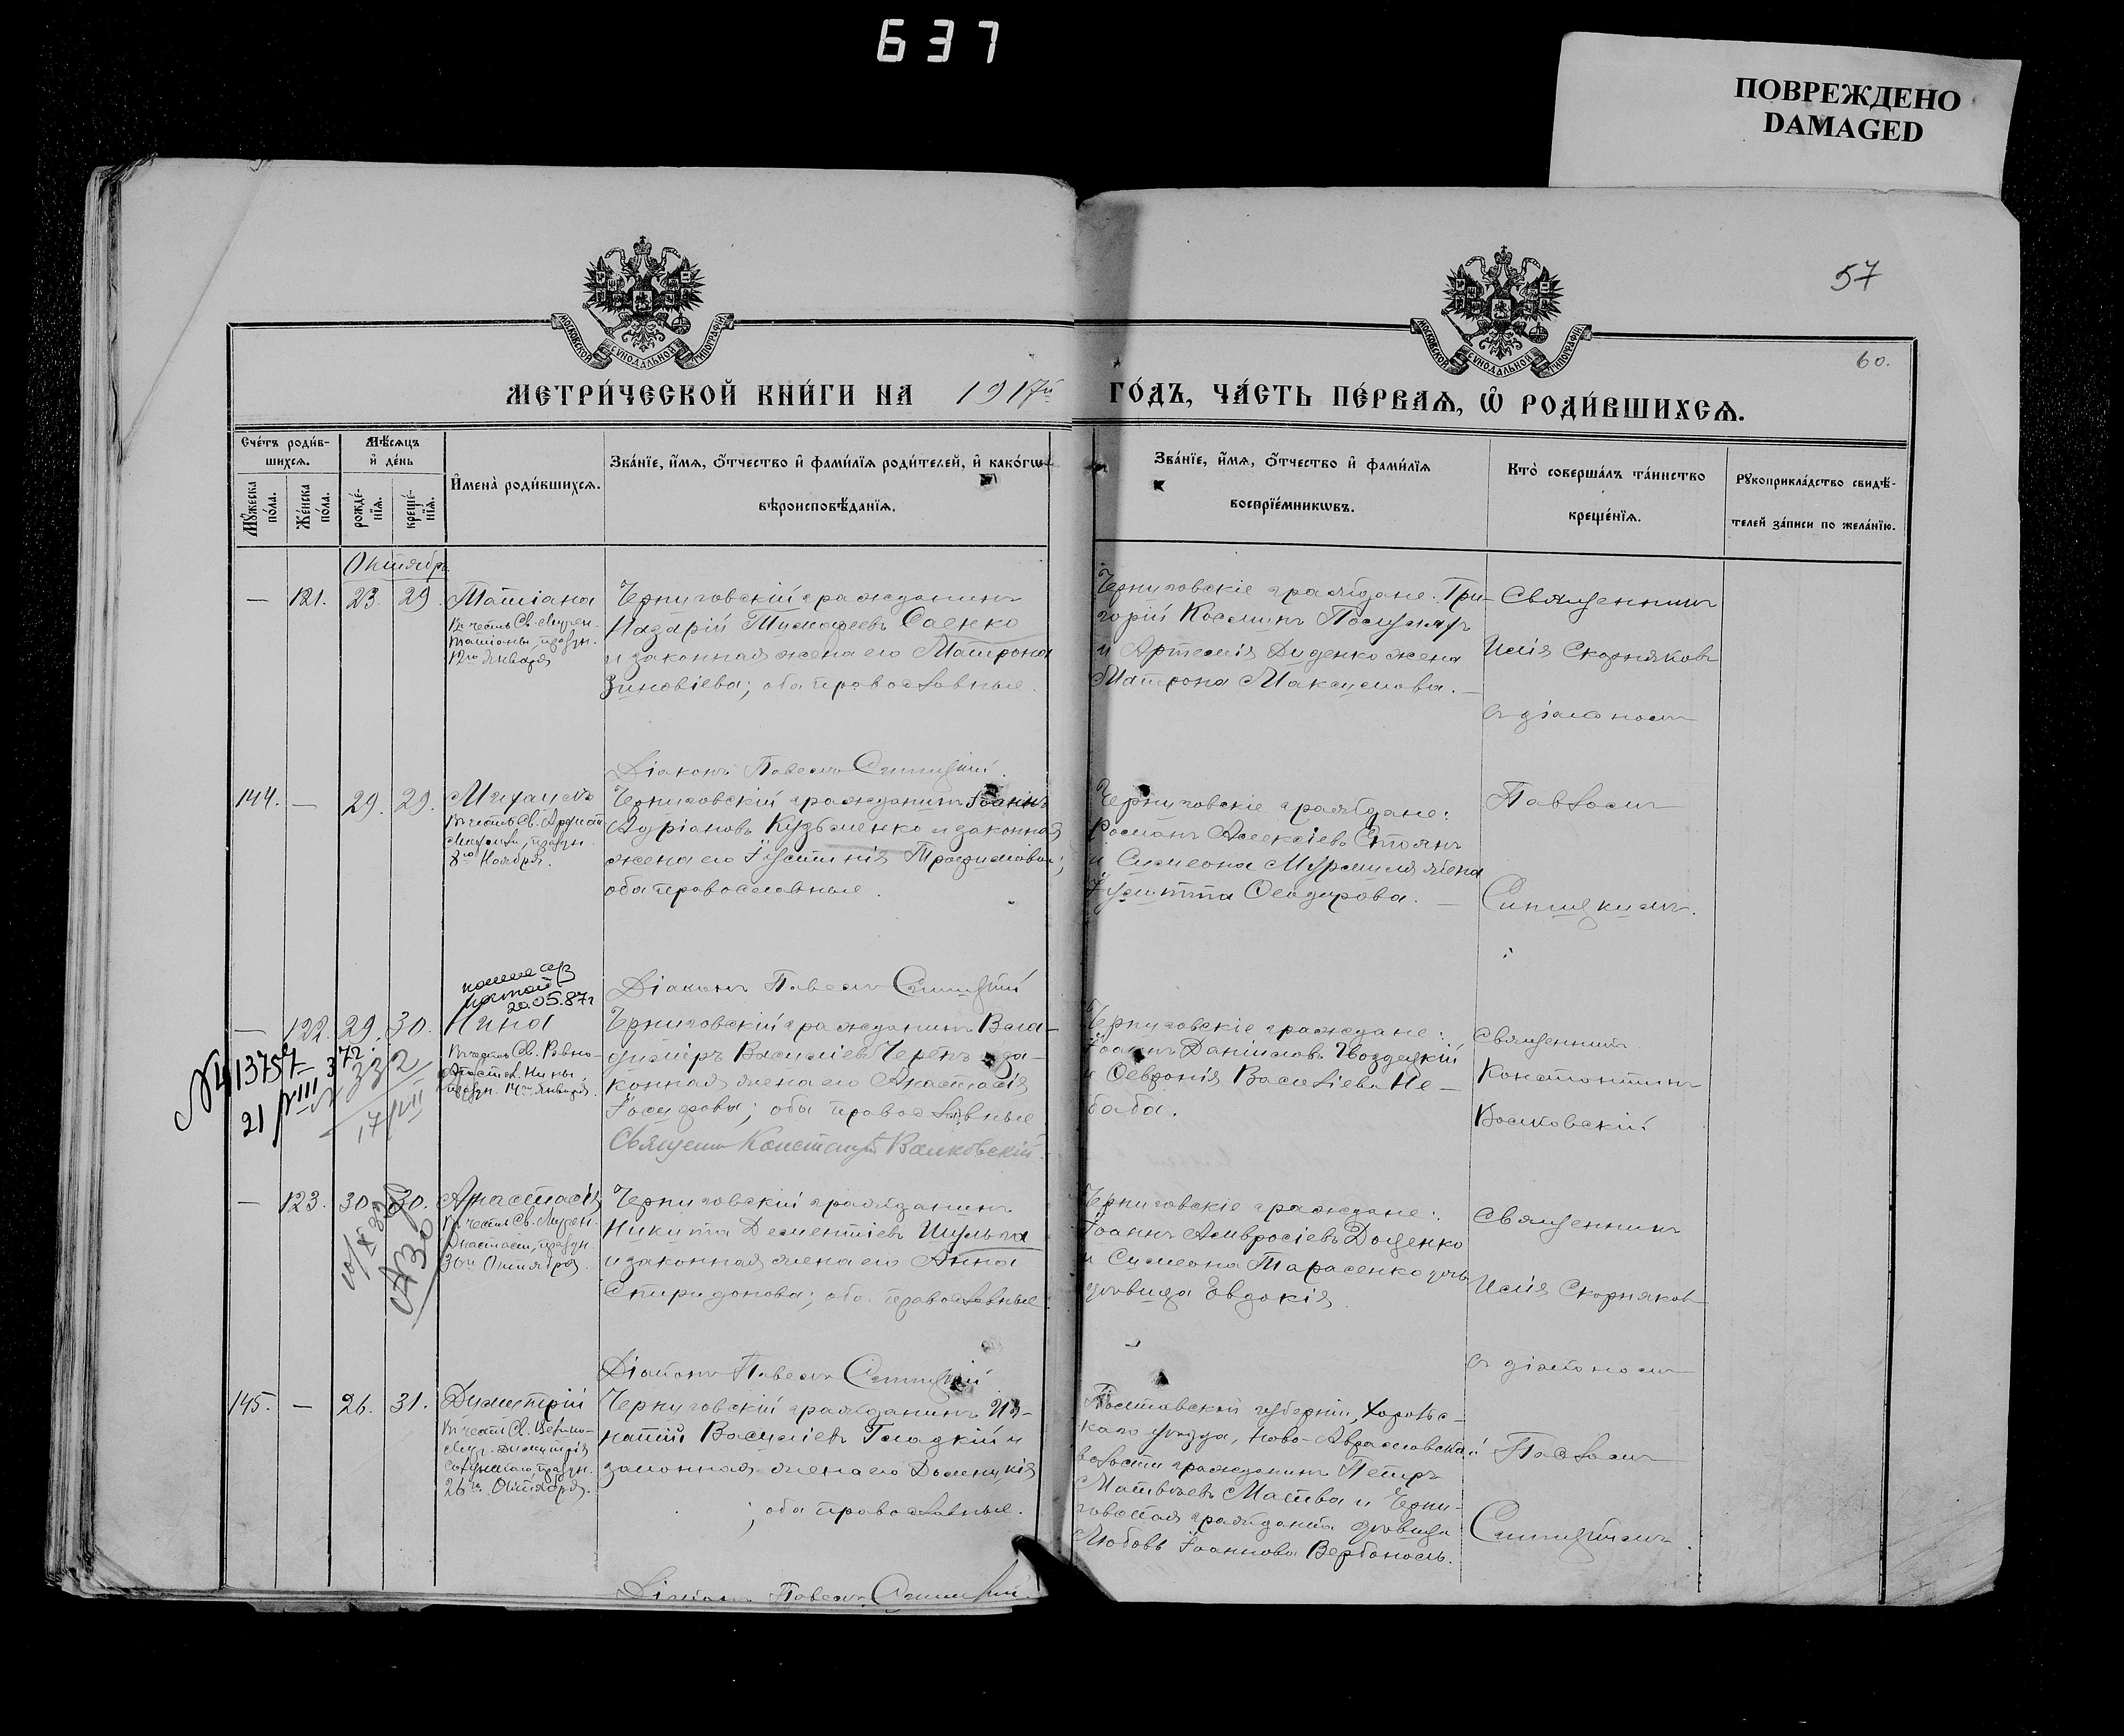 637
ПОВРЕЖДЕНО
DAMAGED
57
60.
МОСКОВСКОЙ СѴНОДАЛЬНОЙ ТИПОГРАФІИ
МОСКОВСКОЙ СѴНОДАЛЬНОЙ ТИПОГРАФІИ
МЕТРИ́ЧЕСКОЙ КНИ́ГИ НА 1917й ГО́ДЪ, ЧА́СТЬ ПЕ́РВАѦ, Ѽ РОДИ́ВШИХСѦ.
Сче́тъ роди́в-
шихся.
Мꙋ́жеска
по́ла.
Же́нска
по́ла.
Мѣ́сяцъ
и҆ де́нь
рожде́-
нїя.
креще́-
нїя.
И҆мена̀ роди́вшихся.
Зва́нїе, и҆́мя, о҆́тчество и҆ фами́лїя роди́телей, и҆ како́гѡ
вѣроисповѣ́данїя.
Зва́нїе, и҆́мя, о҆́тчество и҆ фами́лїя
воспрїе́мникѡвъ.
Кто̀ соверша́лъ та́инство
креще́нїя.
Рꙋкоприкла́дство свидѣ́-
телей за́писи по жела́нїю.
Октябрь
— 121. 23. 29. Татіана
Въ честь Св. Мучен.
Татіаны, праздн.
12го Января
Черниговскій гражданинъ
Назарій Тимофеевъ Саенко
и законная жена его Матрона
Зиновіева; оба православные.
Черниговскіе граждане: Гри-
горій Косминъ
и Артемія Диденко жена
Матрона Максимова.
Священникъ
Илія Скорняковъ
съ діакономъ
Діаконъ Павелъ Синицкій
144. — 29. 29. Михаилъ
Въ честь Св. Архист.
Михаила, праздн.
8го Ноября.
Черниговскій гражданинъ Іоаннъ
Адріановъ Кузьменко и законная
жена его Іустинія Трофимова;
оба православные.
Черниговскіе граждане:
Романъ Алексіевъ Стоянъ
и Симеона жена
Іулитта Ѳеодорова.
Павломъ
Синицкимъ.
Діаконъ Павелъ Синицкій
20.05.87г
— 122. 29. 30. Нина
Въ честь Св. Равно-
Апостол. Нины,
праздн. 14го Января.
№ 13757
21/VIII 372
№ 332
17/VII
Черниговскій гражданинъ Вла-
диміръ Василіевъ Черенъ и за-
конная жена его Анастасія
Іосифова; оба православные
Священ. Константинъ Волковскій.
Черниговскіе граждане:
Іоаннъ Даніиловъ Гвоздецкій
и Ѳевронія Василіева Не-
баба.
Священникъ
Константинъ
Волковскій
— 123. 30. 30. Анастасія
Въ честь Св. Мучен.
Анастасіи, праздн.
30го Октября.
Черниговскій гражданинъ
Никита Дементіевъ Шульга
и законная жена его Анна
Спиридонова; оба православные
Черниговскіе граждане:
Іоаннъ Амвросіевъ Доценко
и Симеона Тарасенко дочь
дѣвица Евдокія
Священникъ
Илія Скорняковъ
съ діакономъ
Діаконъ Павелъ Синицкій
145. — 26. 31. Димитрій
Въ честь Св. Велико-
муч. Димитрія
Солунскаго, праздн.
26го Октября.
Черниговскій гражданинъ Иг-
натій Василіевъ Гладкій и
законная жена его Домникія
; оба православные.
Полтавской губерніи, Хорольс-
каго уѣзда, Ново-Аврамовской
волости гражданинъ Петръ
Матвѣевъ Матва и Черни-
говская гражданка дѣвица
Любовь Іоаннова Вербоносъ.
Павломъ
Синицкимъ.
Діаконъ Павелъ Синицкій